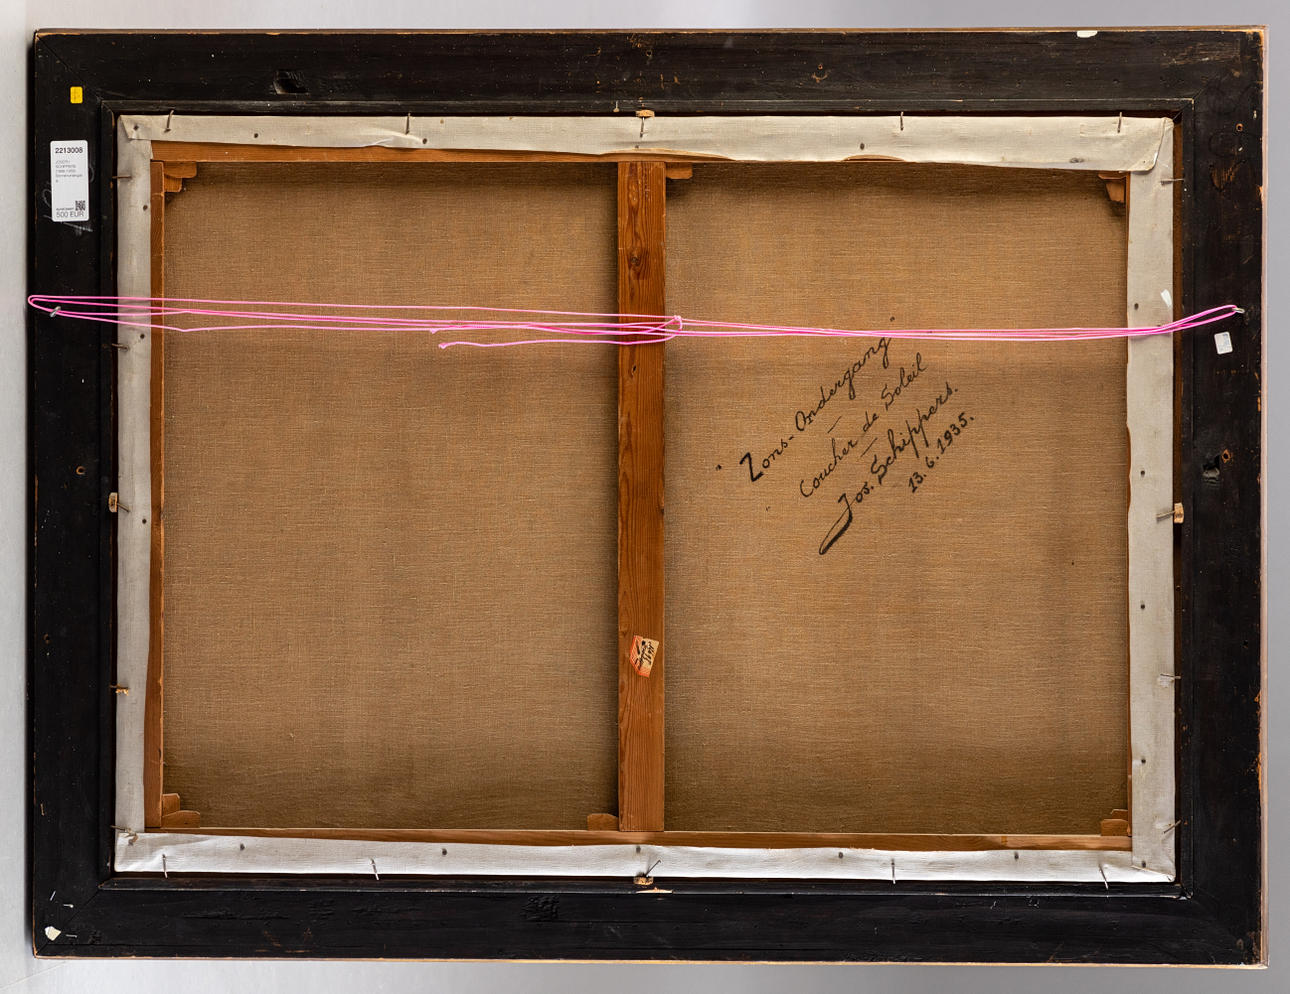 2213008
JOSEPH
SCHIPPERS
500 EUR
"Zons-Ondergang"
Coucher de Soleil
Jos. Schippers.
13.6.1935.